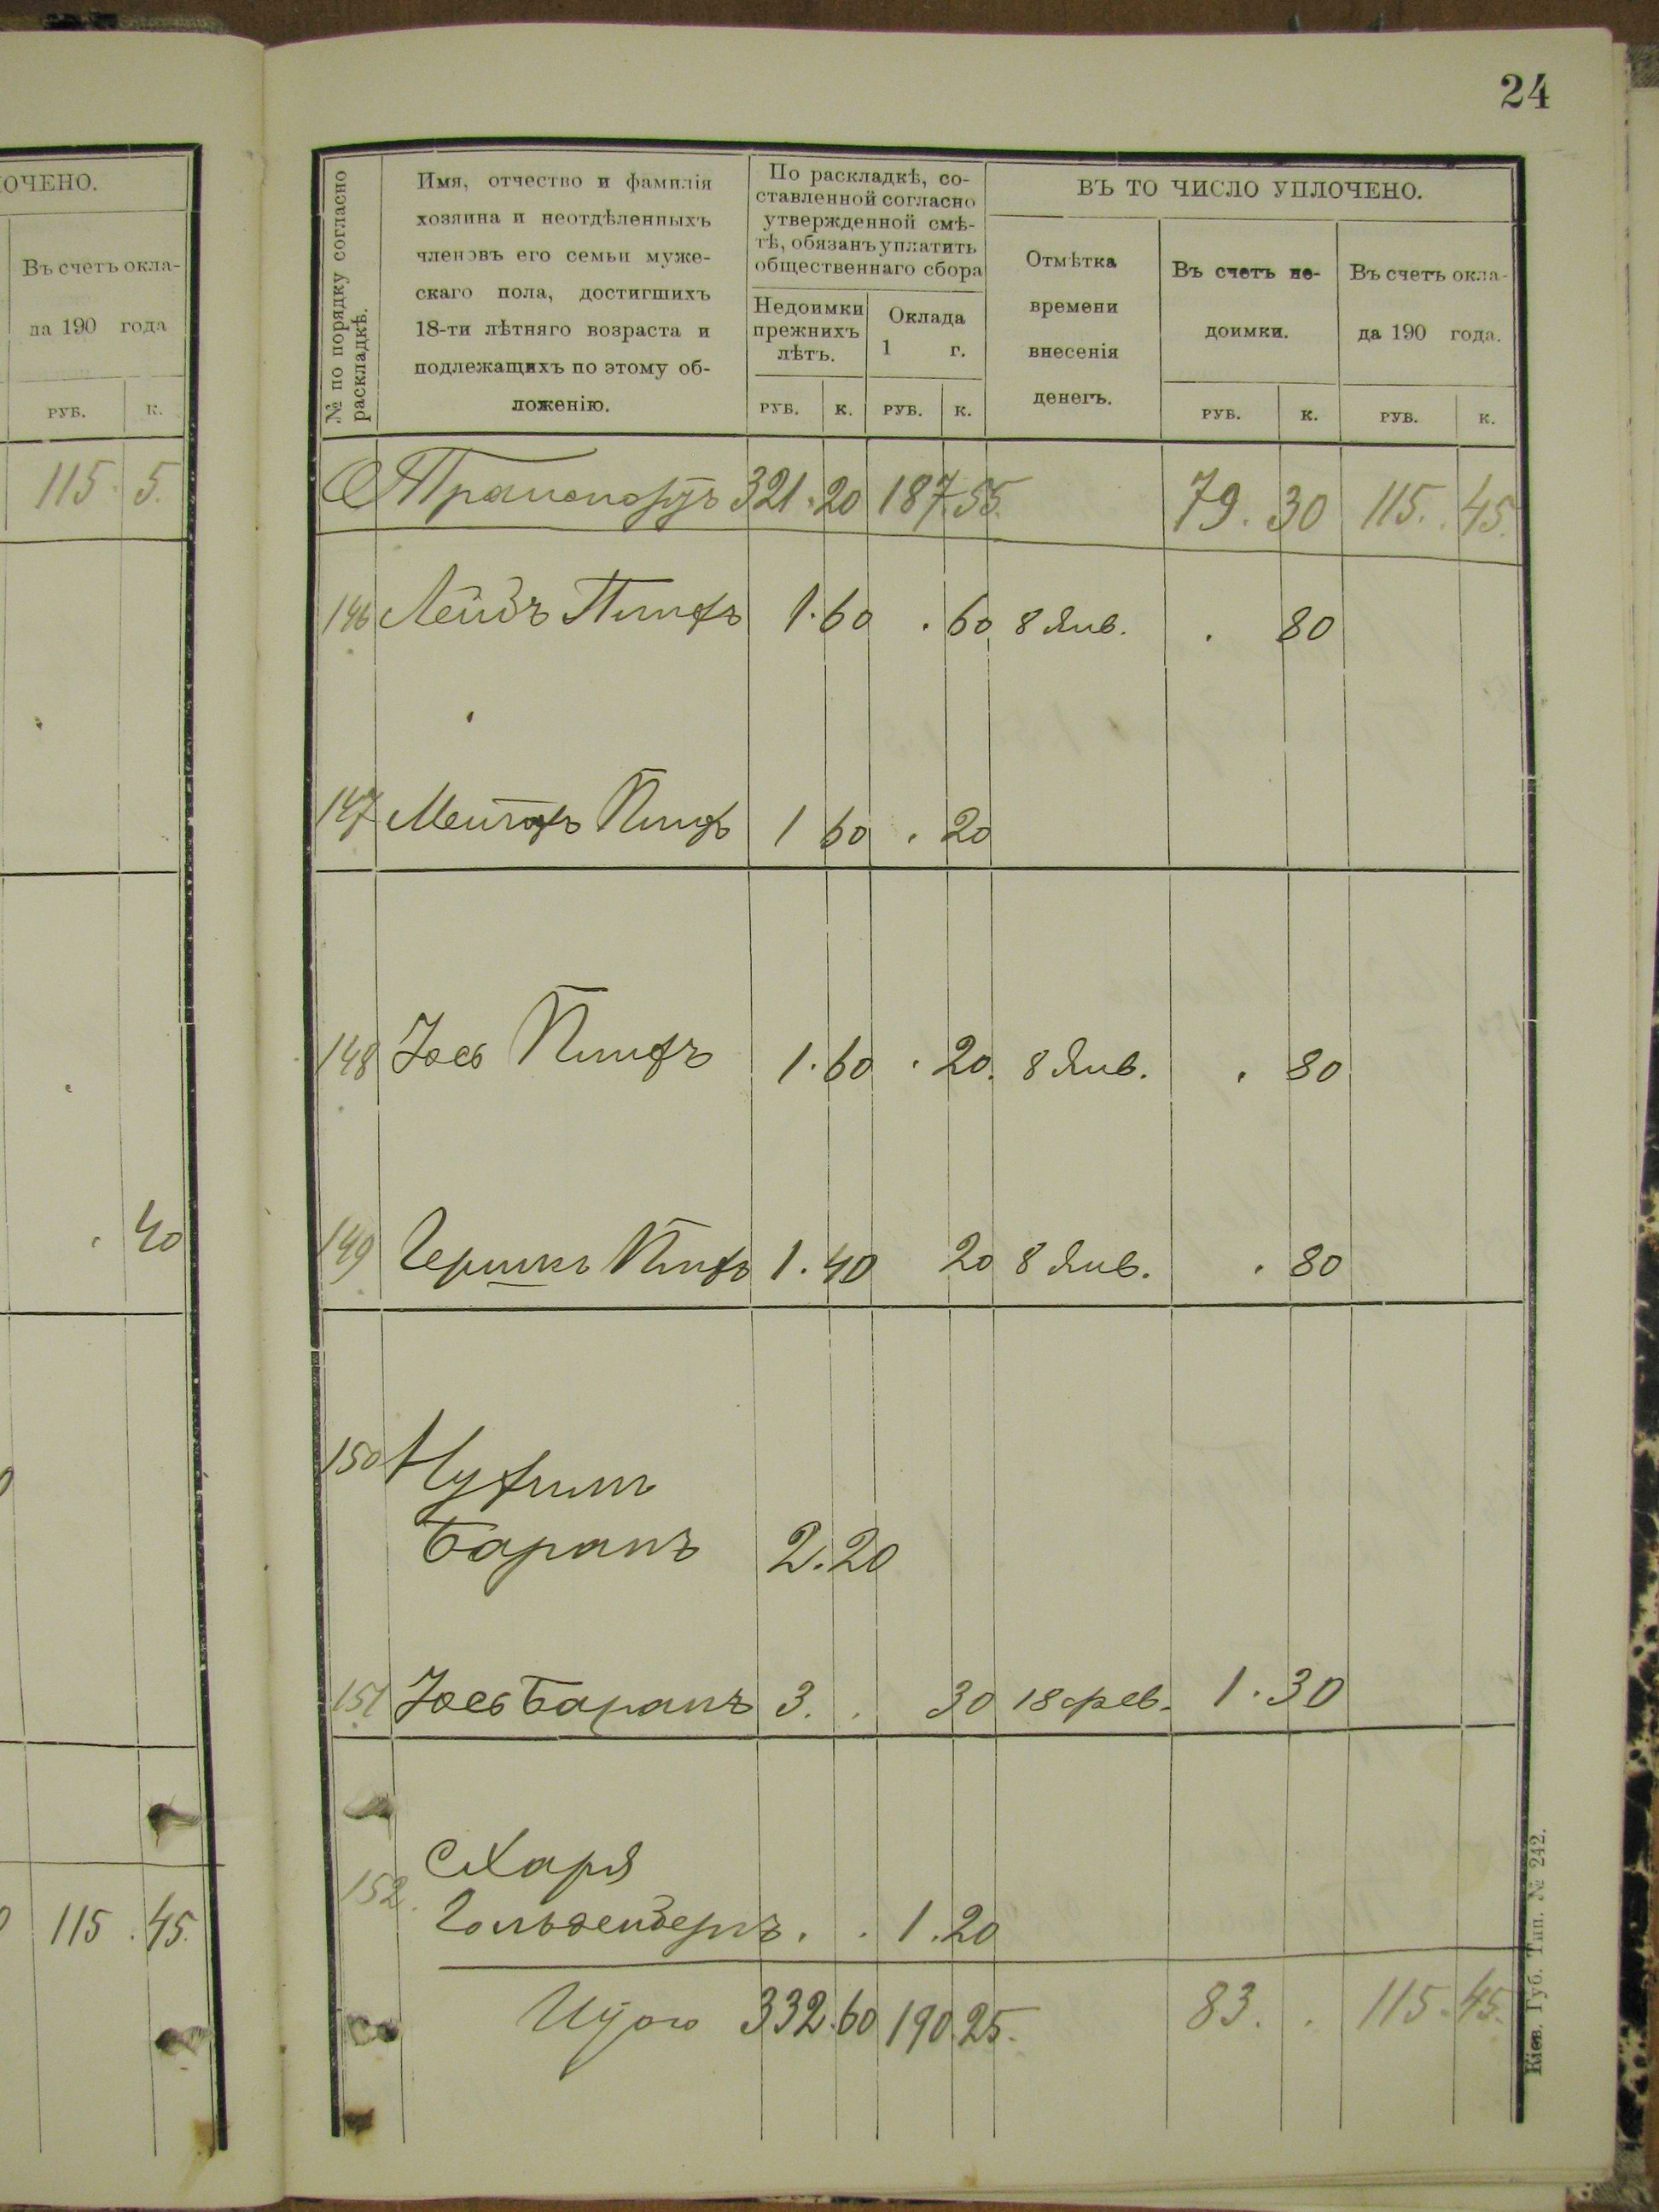 24
ОЧЕНО.
Въ счетъ окла-
да 190 года
РУБ. К.
115. 5.
. 40
115 . 45.
№ по порядку согласно
раскладкѣ.
Имя, отчество и фамилія
хозяина и неотдѣленныхъ
членовъ его семьи муже-
скаго пола, достигшихъ
18-ти лѣтняго возраста и
подлежащихъ по этому об-
ложенію.
По раскладкѣ, со-
ставленной согласно
утвержденной смѣ-
тѣ, обязанъ уплатить
общественнаго сбора
Недоимки
прежнихъ
лѣтъ.
Оклада
1 г.
РУБ. К. РУБ. К.
ВЪ ТО ЧИСЛО УПЛОЧЕНО.
Отмѣтка
времени
внесенія
денегъ.
Въ счетъ не-
доимки.
РУБ. К.
Въ счетъ окла-
да 190 года.
РУБ. К.
Транспортъ 321.20 187.55. 79. 30 115. 45.
146 Лейзъ Пинфъ 1.60 . 60 8 Янв. . 80
147 Пинфъ 1 60 . 20
148 Іось Пинфъ 1.60 . 20. 8 Янв. . 80
149 Гершкъ Пинфъ 1.40 20 8 Янв. . 80
150 Нухимъ
Баранъ 2.20
151 Іось Баранъ 3. . 30 18 фев. 1.30
152. Харя
. . 1.20
Итого 332.60 190.25. 83. . 115.45.
Кіев. Губ. Тип. № 242.